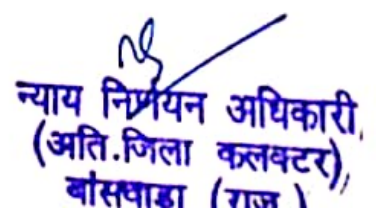 न्याय निर्णयन अधिकारी
(अति.जिला कलक्टर),
बांसवाडा (राज.)